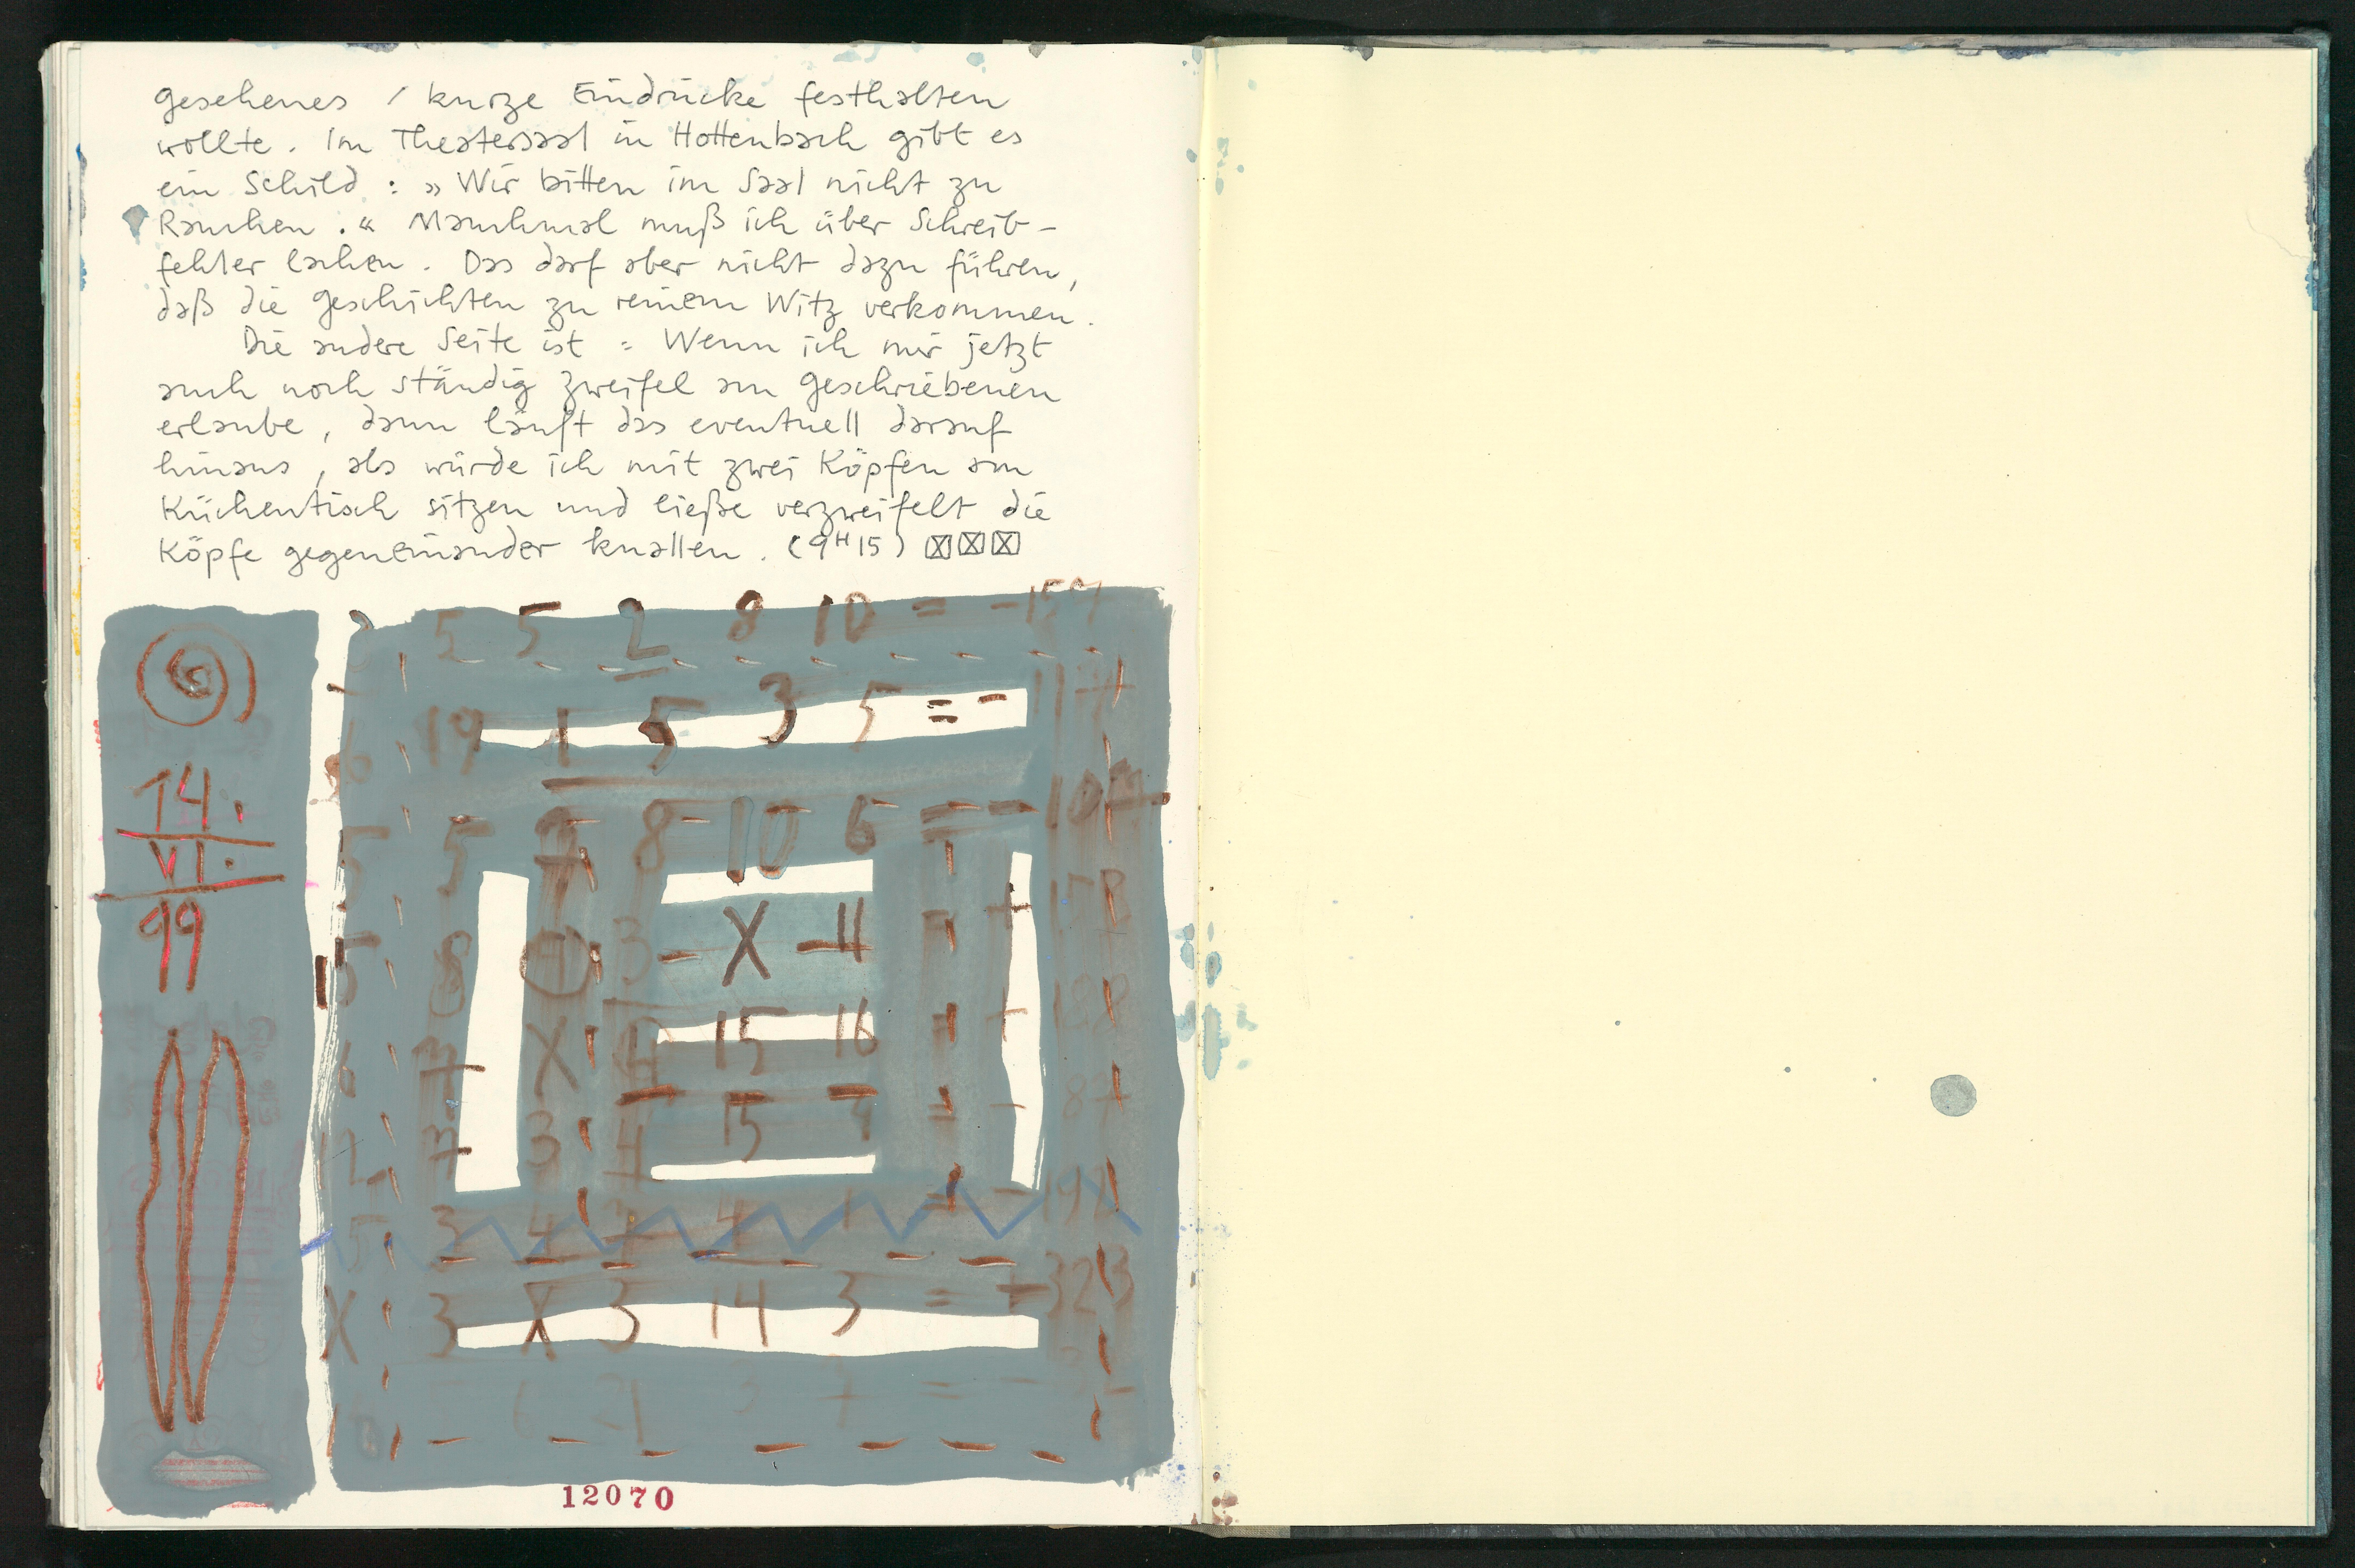 gesehenes / kurze Eindrücke festhalten
wollte. Im Theatersaal in Hottenbach gibt es
ein Schild: »Wir bitten im Saal nicht zu
Rauchen.« Manchmal muß ich über Schreib-
fehler lachen. Das darf aber nicht dazu führen,
daß die Geschichten zu reinem Witz verkommen.
Die andere Seite ist: Wenn ich mir jetzt
auch noch ständig Zweifel am Geschriebenen
erlaube, dann läuft das eventuell darauf
hinaus, als würde ich mit zwei Köpfen am
Küchentisch sitzen und ließe verzweifelt die
Köpfe gegeneinander knallen. (9H15) ☒☒☒
14.
VI.
99
5 5 2 8 10 =
19 1 5 3 5 = -
5 5 8 10 6 = -
X - 11
X 4 15 16
3 4 15
3 4 4 1 = -
X 3 X 3 14 3 = + 323
6 21 3 7 = -
12070